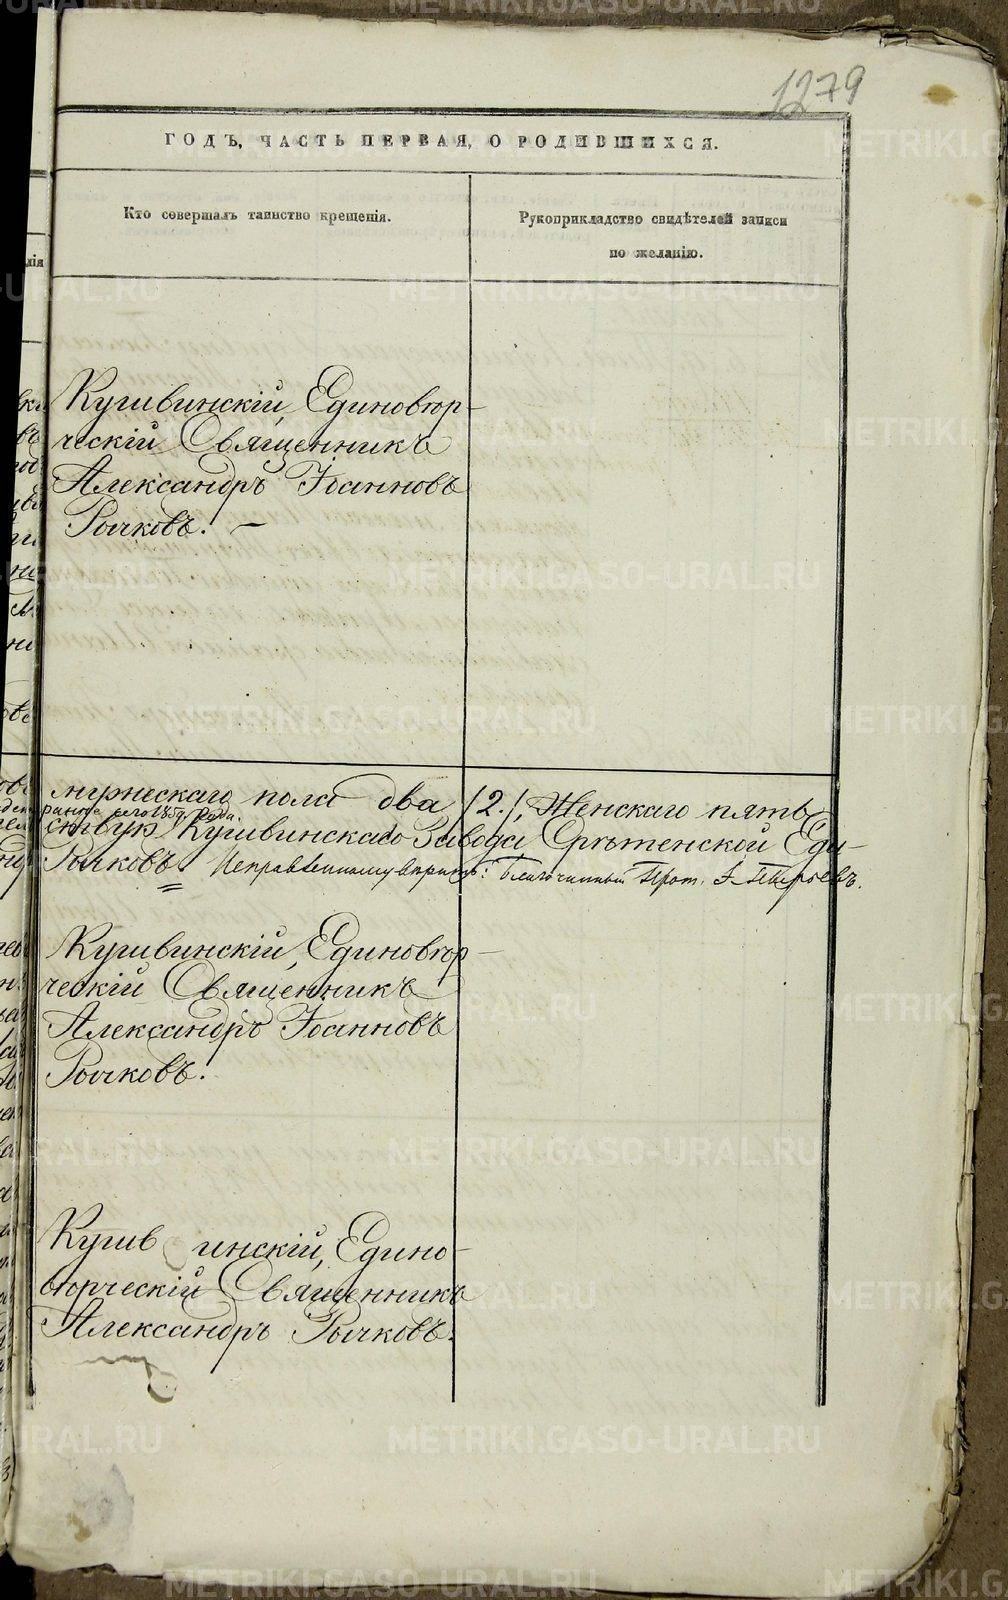 1279
ГОДЪ, ЧАСТЬ ПЕРВАЯ, О РОДИВШИХСЯ.
Кто совершалъ таинство крещенія.
Рукоприкладство свидѣтелей записи
по желанію.
Кушвинскій, Единовѣр-
ческій Священникъ
Александръ Іоанновъ
Рычковъ. —
мужескаго пола два /2./, Женскаго пять
сего 185 года.
Кушвинскаго Завода Срѣтенской Еди-
Рычковъ. Благочинный Прот.
Кушвинскій, Единовѣр-
ческій Священникъ
Александръ Іоанновъ
Рычковъ.
Кушв инскій, Едино-
вѣрческій Священникъ
Александръ Рычковъ.
METRIKI.GASO-URAL.RU